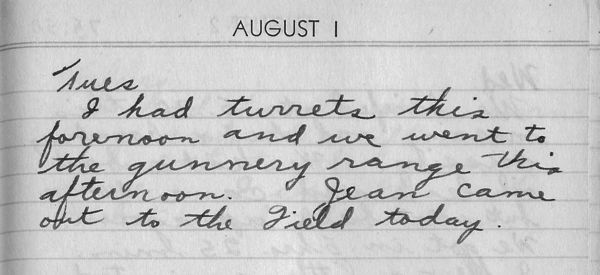 AUGUST 1
Tues
I had turrets this
forenoon and we went to
the gunnery range this
afternoon. Jean came
out to the Field today.